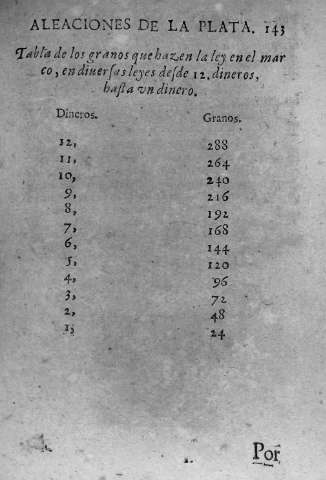 ALEACIONES DE LA PLATA. 143
Tabla de los granos que hazen la ley en el mar
co, en diuersas leyes desde 12. dineros,
hasta vn dinero.
Dineros. Granos.
12, 288
11, 264
10, 240
9, 216
8, 192
7, 168
6, 144
5, 120
4, 96
3, 72
2, 48
1, 24
Por